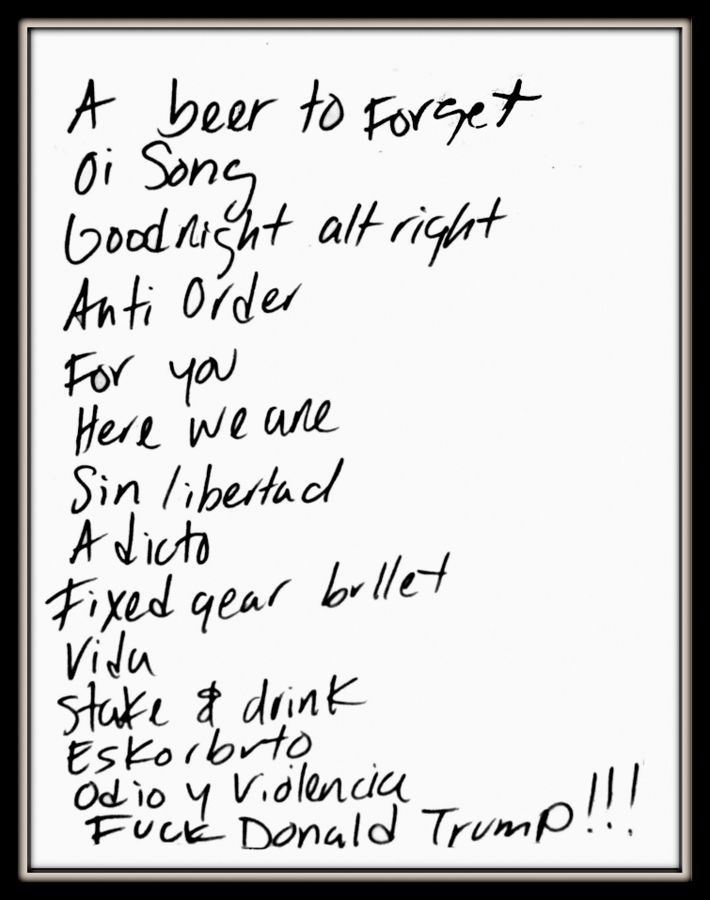 A beer to Forget
Oi Song
Goodnight alt right
Anti Order
For you
Here we are
Sin libertad
Adicto
Fixed gear bullet
Vida
Stake & drink
Eskorbuto
Odio y Violencia
Fuck Donald Trump!!!